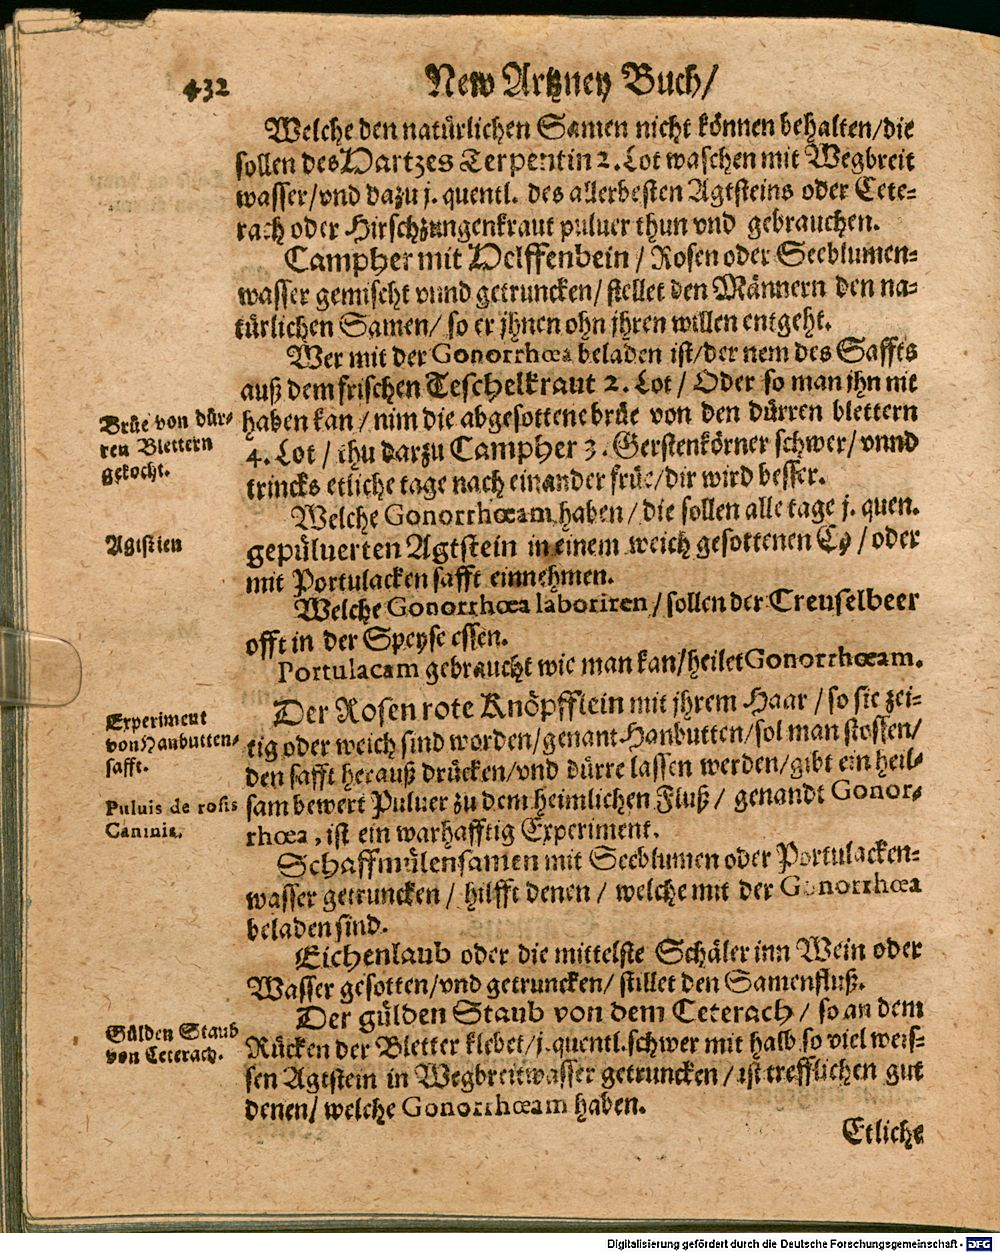 432
New Artzney Buch/
Welche den natürlichen Samen nicht können behalten/die
sollen des Hartzes Terpentin 2. Lot waschen mit Wegbreit
wasser/vnd dazu j. quentl. des allerbesten Agtsteins oder Cete-
rach oder Hirschzungenkraut puluer thun vnd gebrauchen.
Campher mit Helffenbein / Rosen oder Seeblumen-
wasser gemischt vnnd getruncken/ stellet den Männern den na-
türlichen Samen/ so er jhnen ohn jhren willen entgeht.
Wer mit der Gonorrhœa beladen ist/der nem des Saffts
auß dem frischen Teschelkraut 2. Lot / Oder so man jhn nit
haben kan / nim die abgesottene brüe von den dürren blettern
4. Lot / thu darzu Campher 3. Gerstenkörner schwer/ vnnd
trincks etliche tage nach einander früe/dir wird besser.
Brüe von dür-
ren Blettern
gekocht.
Welche Gonorrhœam haben / die sollen alle tage j. quen.
gepüluerten Agtstein in einem weich gesottenen Ey / oder
mit Portulacken safft einnehmen.
Agtstien
Welche Gonorrhœa laboriren / sollen der Creuselbeer
offt in der Speyse essen.
Portulacam gebraucht wie man kan/heilet Gonorrhœam.
Der Rosen rote Knöpfflein mit jhrem Haar / so sie zei-
tig oder weich sind worden/genant Hanbutten/sol man stossen/
den safft herauß drücken/vnd dürre lassen werden/gibt ein heil-
sam bewert Puluer zu dem heimlichen Fluß / genandt Gonor-
rhœa, ist ein warhafftig Experiment.
Experiment
von Hanbutten-
safft.
Puluis de rosis
Caninis.
Schaffmülensamen mit Seeblumen oder Portulacken-
wasser getruncken / hilfft denen / welche mit der Gonorrhœa
beladen sind.
Eichenlaub oder die mittelste Schäler inn Wein oder
Wasser gesotten/vnd getruncken/ stillet den Samenfluß.
Der gülden Staub von dem Ceterach / so an dem
Rücken der Bletter klebet/j.quentl.schwer mit halb so viel weis-
sen Agtstein in Wegbreitwasser getruncken / ist trefflichen gut
denen/ welche Gonorrhœam haben.
Gülden Staub
von Ceterach.
Etliche
Digitalisierung gefördert durch die Deutsche Forschungsgemeinschaft - DFG